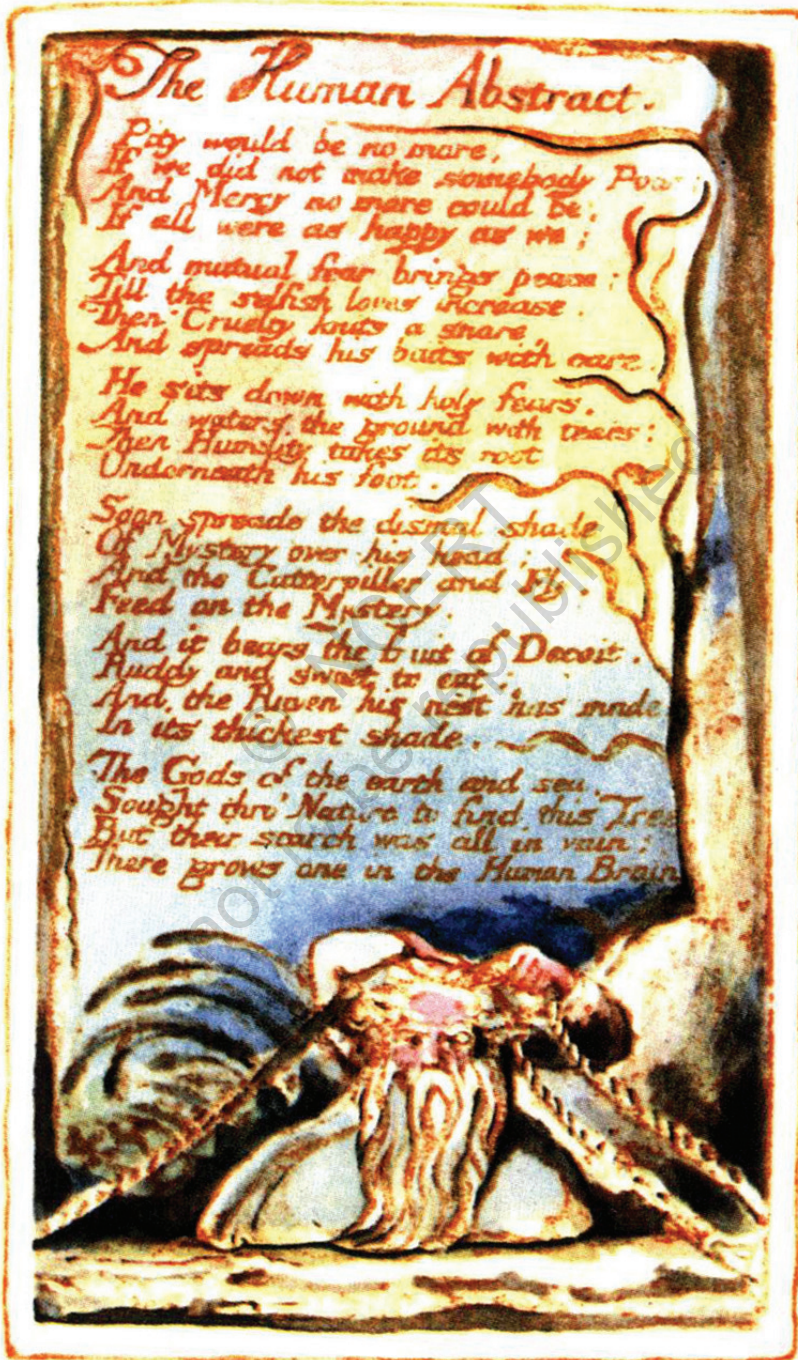 The Human Abstract.
Pity would be no more,
If we did not make somebody Poor:
And Mercy no more could be,
If all were as happy as we;
And mutual fear brings peace:
Till the selfish loves increase.
Then Cruelty knits a snare,
And spreads his baits with care.
He sits down with holy fears,
And waters the ground with tears:
Then Humility takes its root
Underneath his foot.
Soon spreads the dismal shade
Of Mystery over his head;
And the Catterpiller and Fly,
Feed on the Mystery
And it bears the fruit of Deceit,
Ruddy and sweet to eat;
And the Raven his nest has made
In its thickest shade.
The Gods of the earth and sea,
Sought thro' Nature to find this Tree
But their search was all in vain:
There grows one in the Human Brain
© NCERT
not to be republished